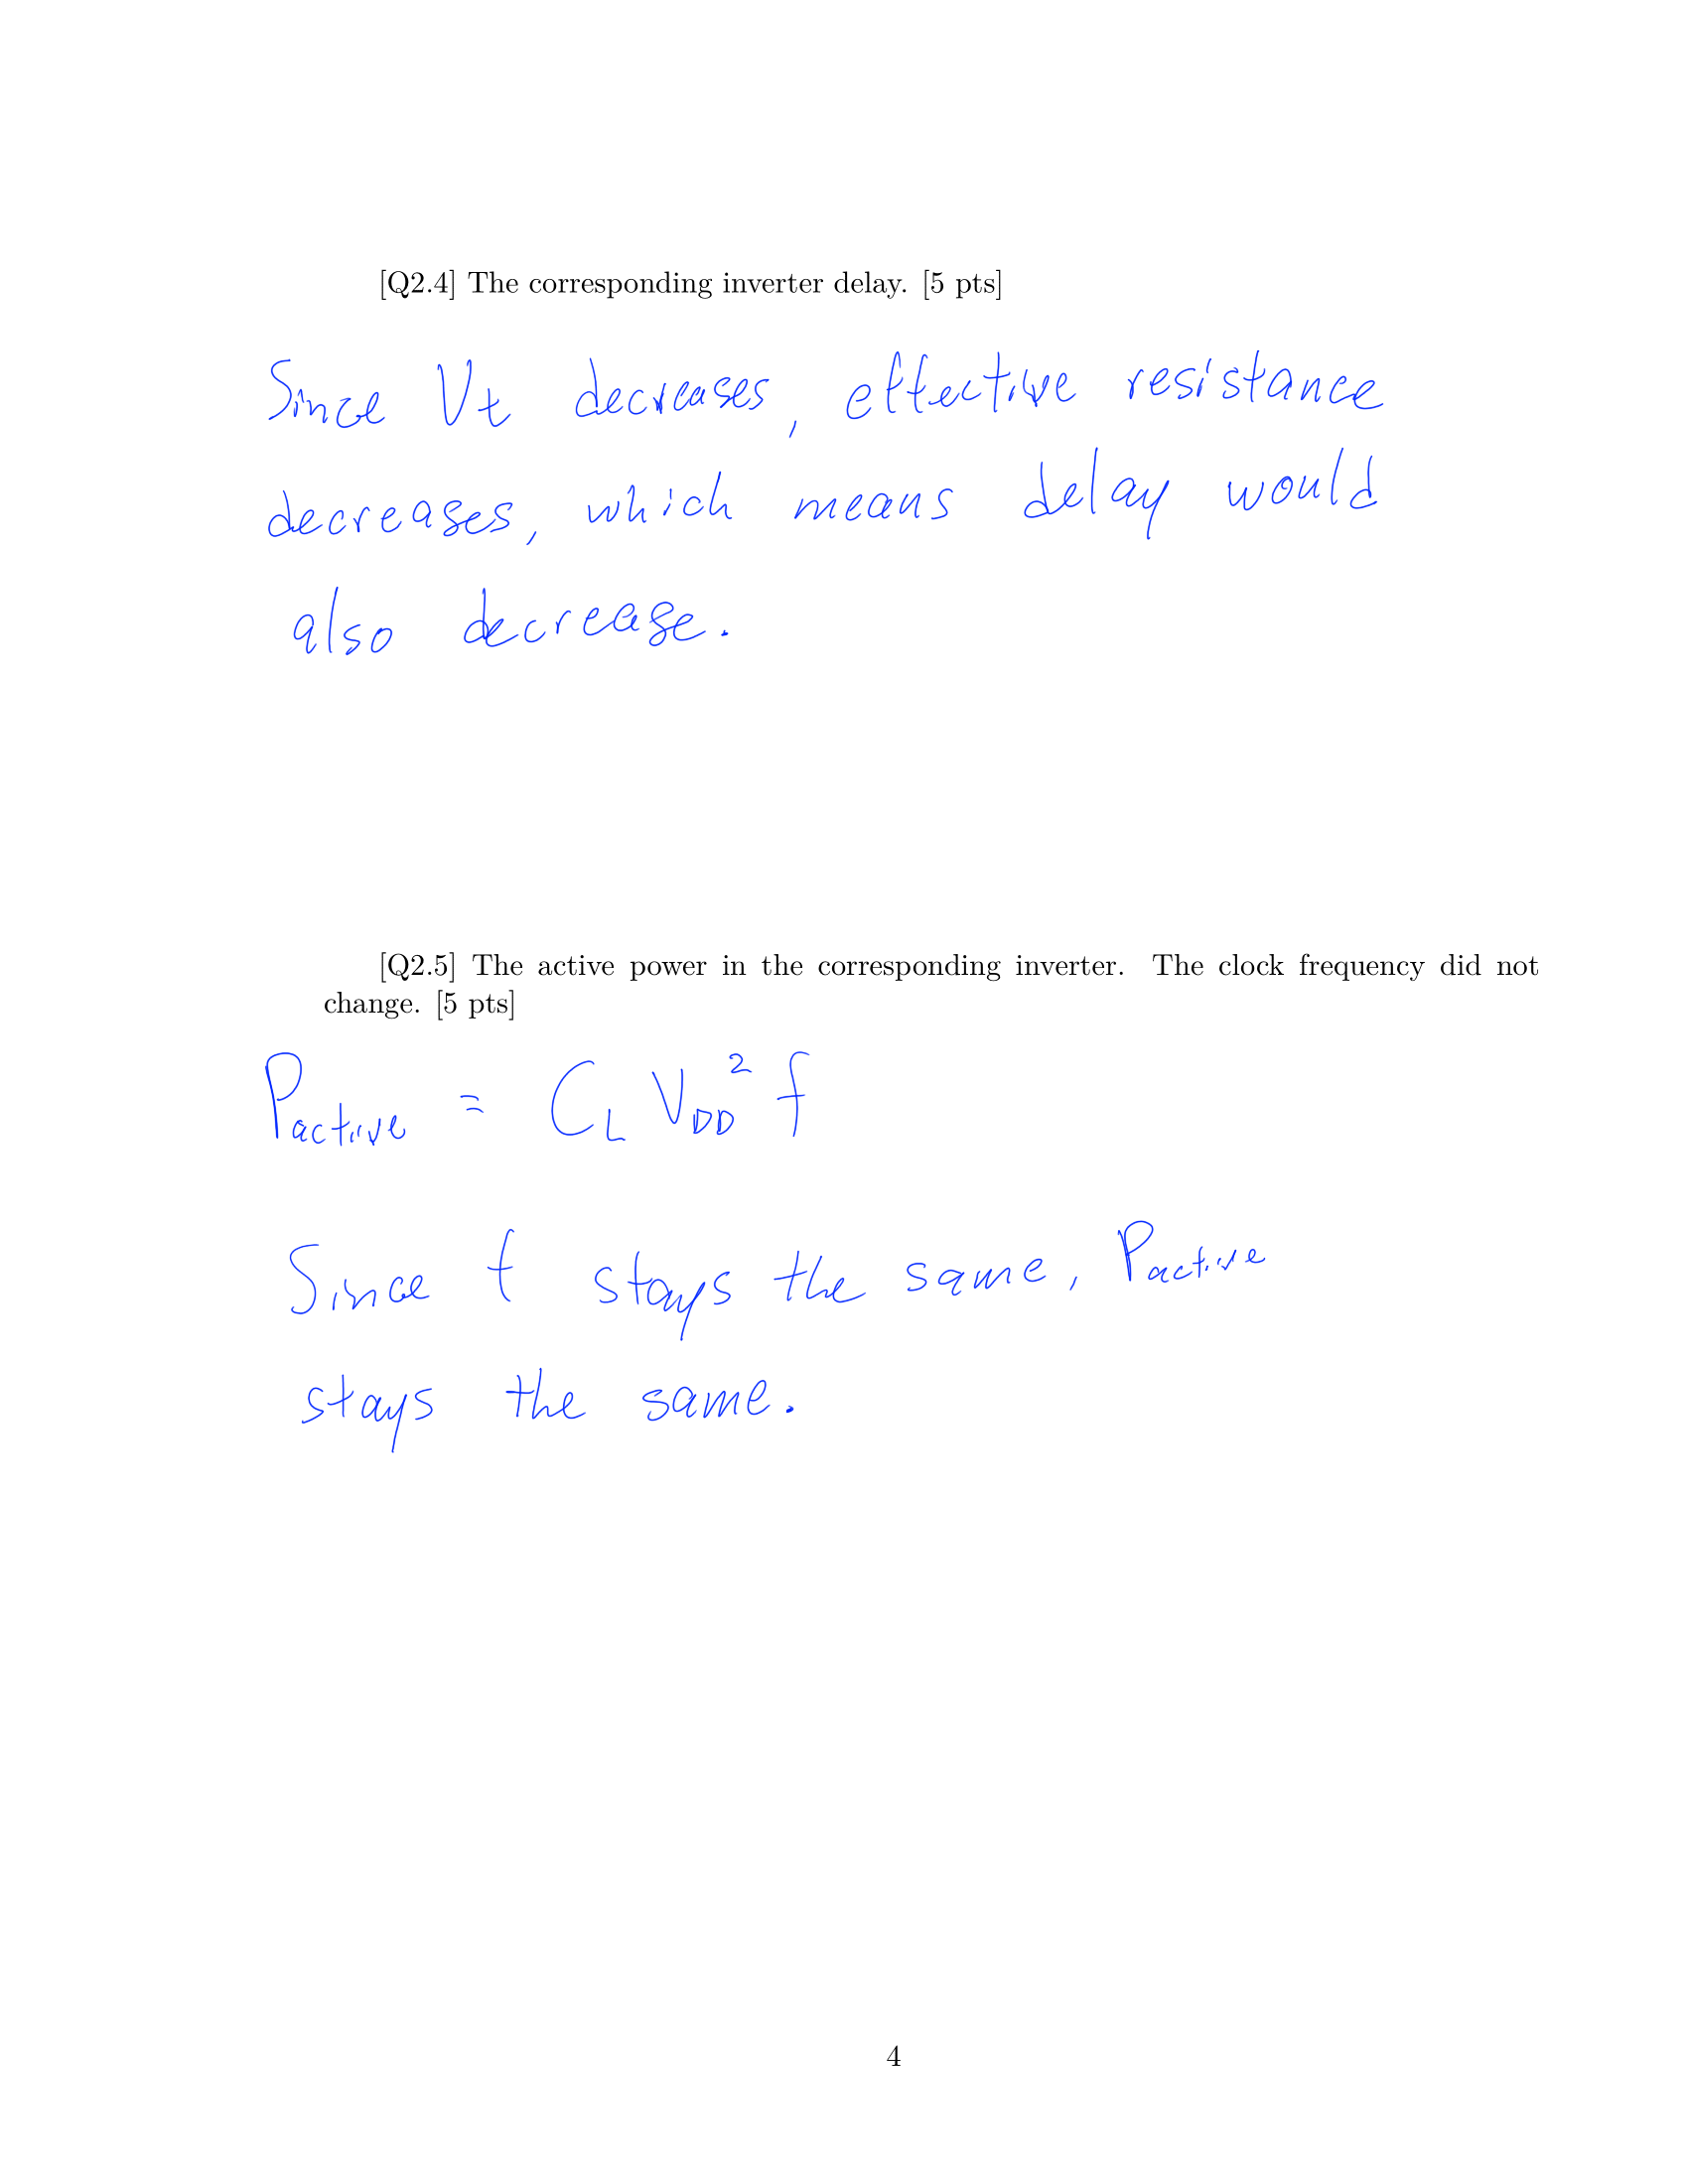 [Q2.4] The corresponding inverter delay. [5 pts]
Since Vt decreases, effective resistance
decreases, which means delay would
also decrease.
[Q2.5] The active power in the corresponding inverter. The clock frequency did not
change. [5 pts]
P_active = C_L V_DD^2 f
Since f stays the same, P_active
stays the same.
4